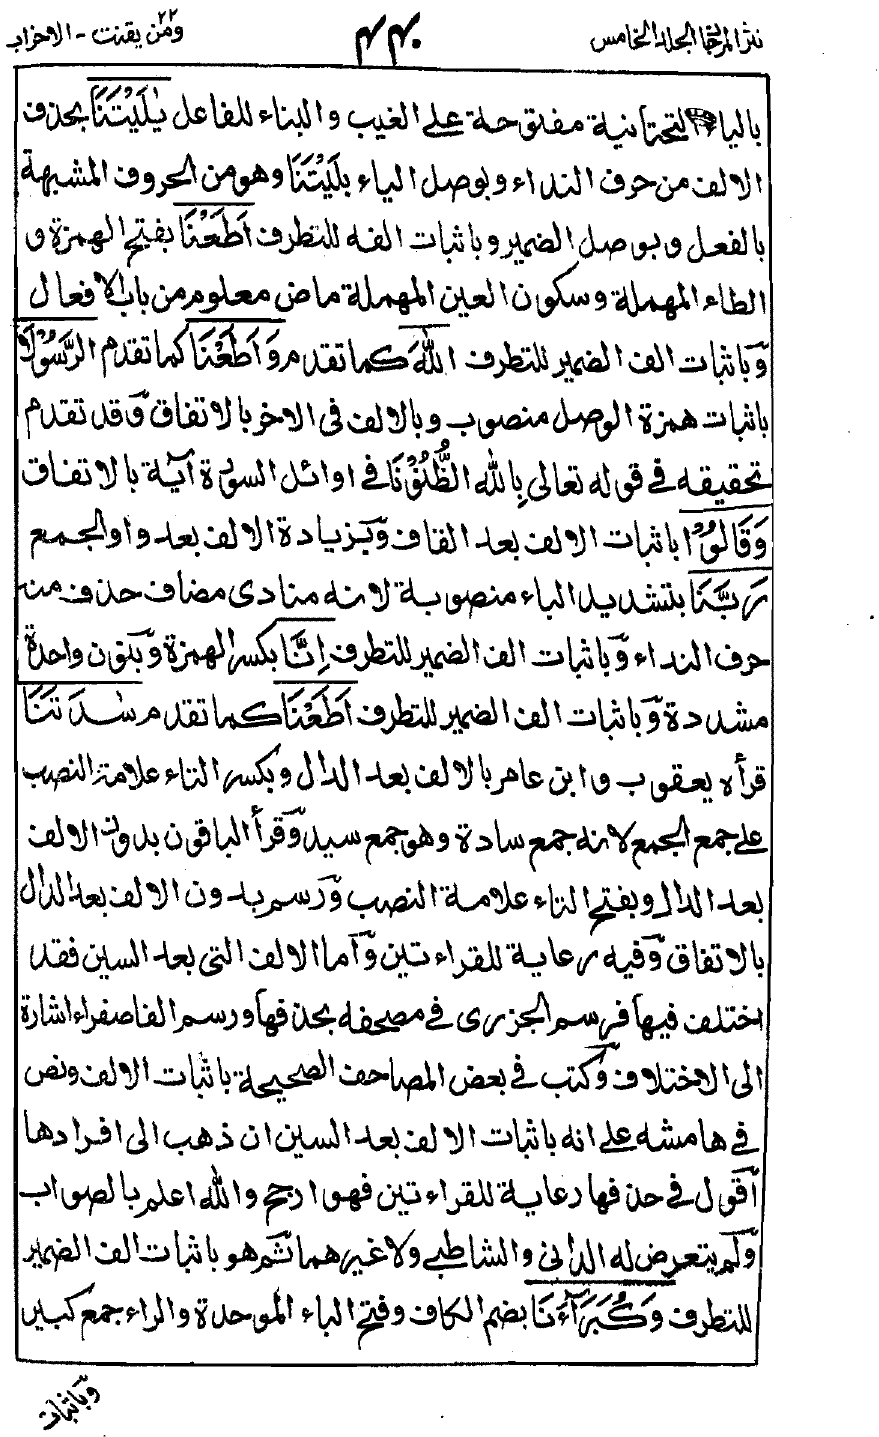 نثر المرجان المجلد الخامس
۴۴۰
ومن يقنت ۲۲ - الاحزاب
بالياء التحتانية مفتوحة على الغيب والبناء للفاعل يٰلَيْتَنَا بحذف
الالف من حرف النداء وبوصل الياء بلَيْتَنَا وهو من الحروف المشبهة
بالفعل وبوصل الضمير وباثبات الفه للتطرف اَطَعْنَا بفتح الهمزة و
الطاء المهملة وسكون العين المهملة ماض معلوم من باب الافعال
وباثبات الف الضمير للتطرف اللّٰهَ كما تقدم وَاَطَعْنَا كما تقدم الرَّسُوْلَا
باثبات همزة الوصل منصوب وبالالف فى الاخر بالاتفاق وقد تقدم
تحقيقه فى قوله تعالى بِاللّٰهِ الظُّنُوْنَا فى اوائل السورة آية بالاتفاق
وَقَالُوْا باثبات الالف بعد القاف وبزيادة الالف بعد واو الجمع
رَبَّنَا بتشديد الباء منصوبة لانه منادى مضاف حذف منه
حرف النداء وباثبات الف الضمير للتطرف اِنَّا بكسر الهمزة وبنون واحدة
مشددة وباثبات الف الضمير للتطرف اَطَعْنَا كما تقدم سٰدَتَنَا
قرأه يعقوب وابن عامر بالالف بعد الدال وبكسر التاء علامة النصب
على جمع الجمع لانه جمع سادة وهو جمع سيد وقرأ الباقون بدون الالف
بعد الدال وبفتح التاء علامة النصب ورسم بدون الالف بعد الدال
بالاتفاق وفيه رعاية للقراءتين واما الالف التى بعد السين فقد
اختلف فيها فرسم الجزرى فى مصحفه بحذفها ورسم الفا صفراء اشارة
الى الاختلاف وكتب فى بعض المصاحف الصحيحة باثبات الالف ونص
فى هامشه على انه باثبات الالف بعد السين ان ذهب الى افرادها
اقول فى حذفها رعاية للقراءتين فهو ارجح والله اعلم بالصواب
ولم يتعرض له الدانى والشاطبى ولا غيرهما ثم هو باثبات الف الضمير
للتطرف وَكُبَرَآءَنَا بضم الكاف وفتح الباء الموحدة والراء جمع كبير
وباثبات